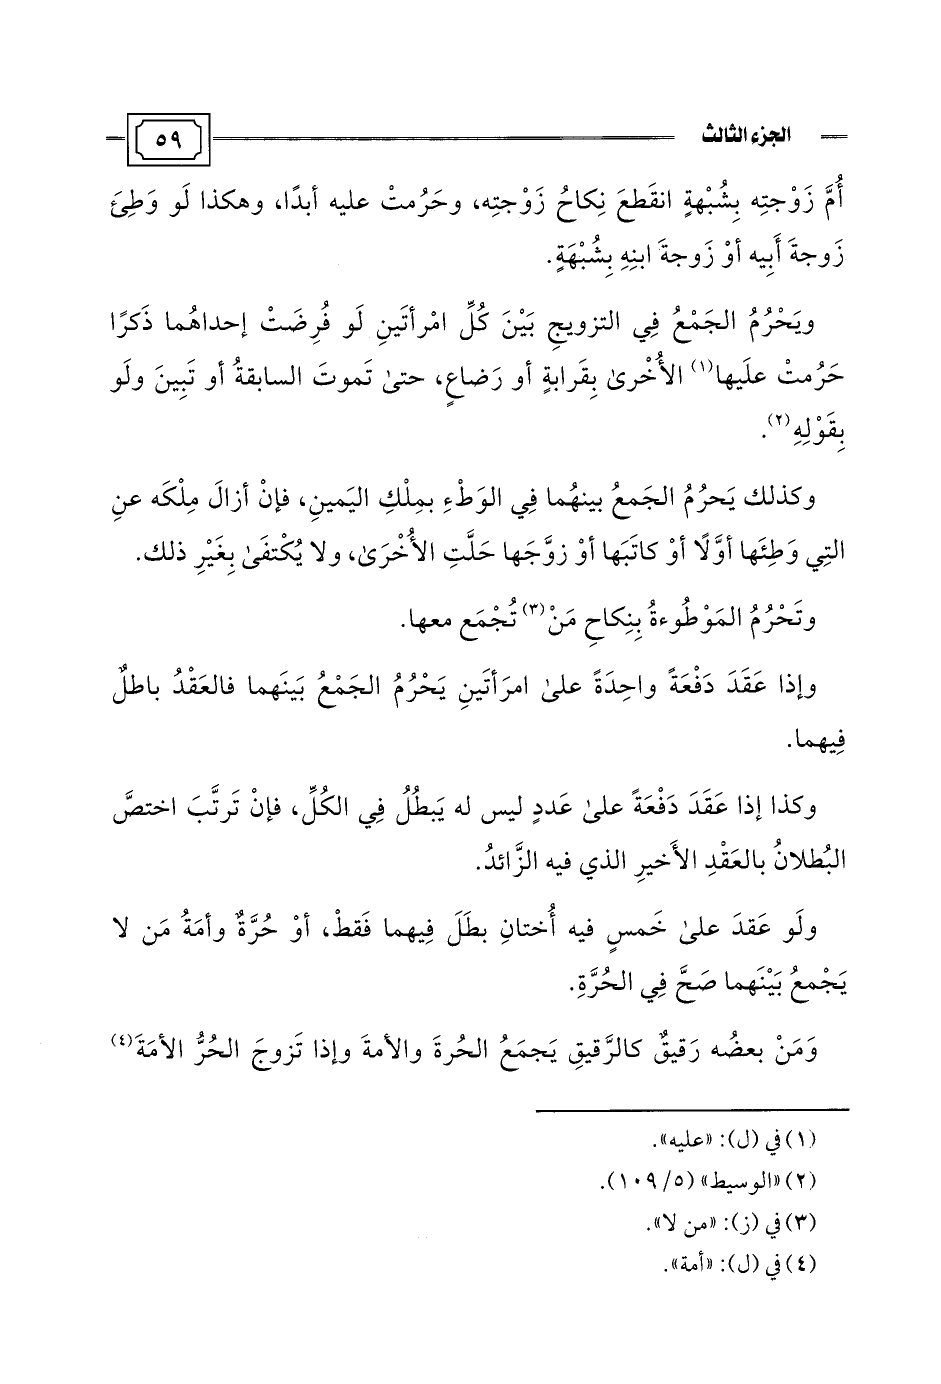 الجزء الثالث
٥٩
أُمَّ زَوْجتِه بِشُبْهةٍ انقَطعَ نِكاحُ زَوْجتِه، وحَرُمتْ عليه أبدًا، وهكذا لَو وَطِئَ
زَوجةَ أَبِيه أوْ زَوجةَ ابنِهِ بِشُبْهَةٍ.
ويَحْرُمُ الجَمْعُ فِي التزويجِ بَيْنَ كُلِّ امْرأتَينِ لَو فُرِضَتْ إحداهُما ذَكرًا
حَرُمتْ علَيها(١) الأُخْرىٰ بِقَرابةٍ أو رَضاعٍ، حتىٰ تَموتَ السابقةُ أو تَبِينَ ولَو
بِقَوْلِهِ(٢).
وكذلك يَحرُمُ الجَمعُ بينهُما فِي الوَطْءِ بمِلْكِ اليَمينِ، فإنْ أزالَ مِلْكَه عنِ
التِي وَطِئَها أوَّلًا أوْ كاتَبَها أوْ زوَّجَها حَلَّتِ الأُخْرَىٰ، ولا يُكْتفَىٰ بِغَيْرِ ذلك.
وتَحْرُمُ المَوْطُوءةُ بِنِكاحِ مَنْ(٣) تُجْمَع معها.
وإذا عَقَدَ دَفْعَةً واحِدَةً علىٰ امرَأتَينِ يَحْرُمُ الجَمْعُ بَينَهما فالعَقْدُ باطلٌ
فِيهما.
وكذا إذا عَقَدَ دَفْعَةً علىٰ عَددٍ ليس له يَبطُلُ فِي الكُلِّ، فإنْ تَرتَّبَ اختصَّ
البُطلانُ بالعَقْدِ الأَخيرِ الذي فيه الزَّائدُ.
ولَو عَقدَ علىٰ خَمسٍ فيه أُختانِ بطَلَ فِيهما فَقطْ، أوْ حُرَّةٌ وأمَةُ مَن لا
يَجْمعُ بَيْنَهما صَحَّ فِي الحُرَّةِ.
وَمَنْ بعضُه رَقيقٌ كالرَّقيقِ يَجمَعُ الحُرةَ والأمةَ وإذا تَزوجَ الحُرُّ الأمَةَ(٤)
(١) في (ل): «عليه».
(٢) «الوسيط» (٥/ ١٠٩).
(٣) في (ز): «من لا».
(٤) في (ل): «أمة».